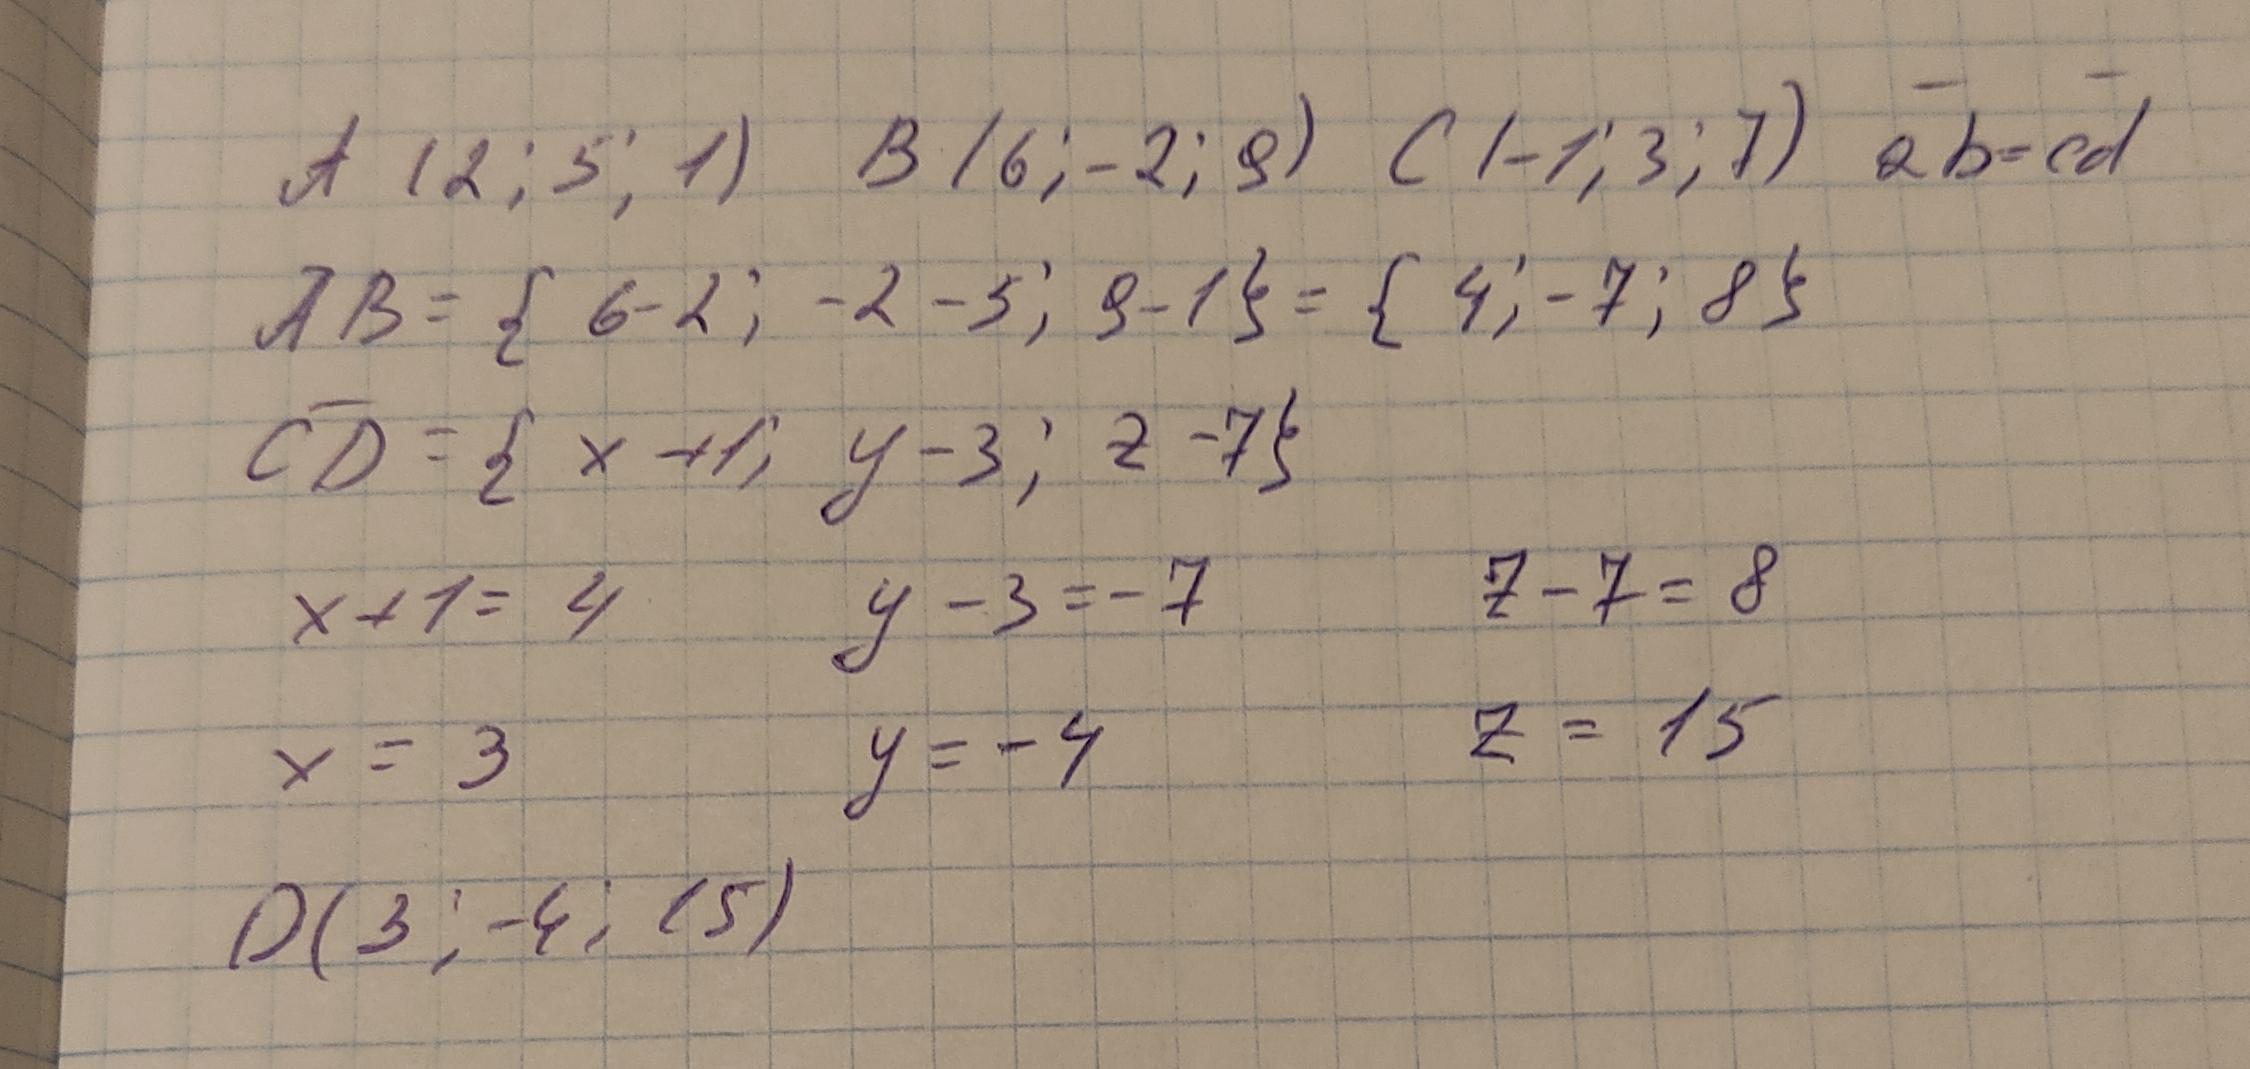 A (2; 5; 1) B (6; -2; 9) C (-1; 3; 7) ab̅=cd̅
AB = { 6-2; -2-5; 9-1} = { 4; -7; 8}
C̅D̅ = { x+1; y-3; z-7}
x+1= 4 y-3=-7 z-7= 8
x = 3 y=-4 z = 15
D(3; -4; 15)